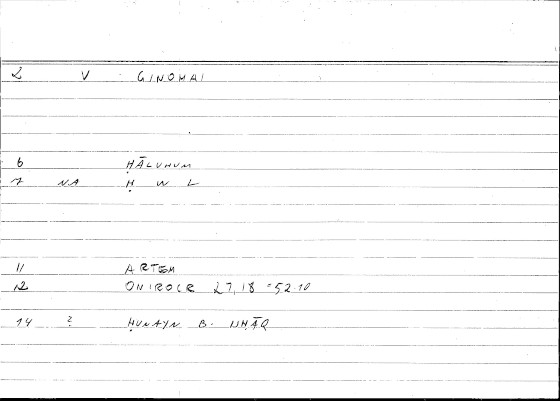 2 V GINOMAI
6 ḤĀLUHUM
7 NA Ḥ W L
11 ARTEM
12 ONIROCR 27,18 = 52.10
14 ? ḤUNAYN B. ISḤĀQ